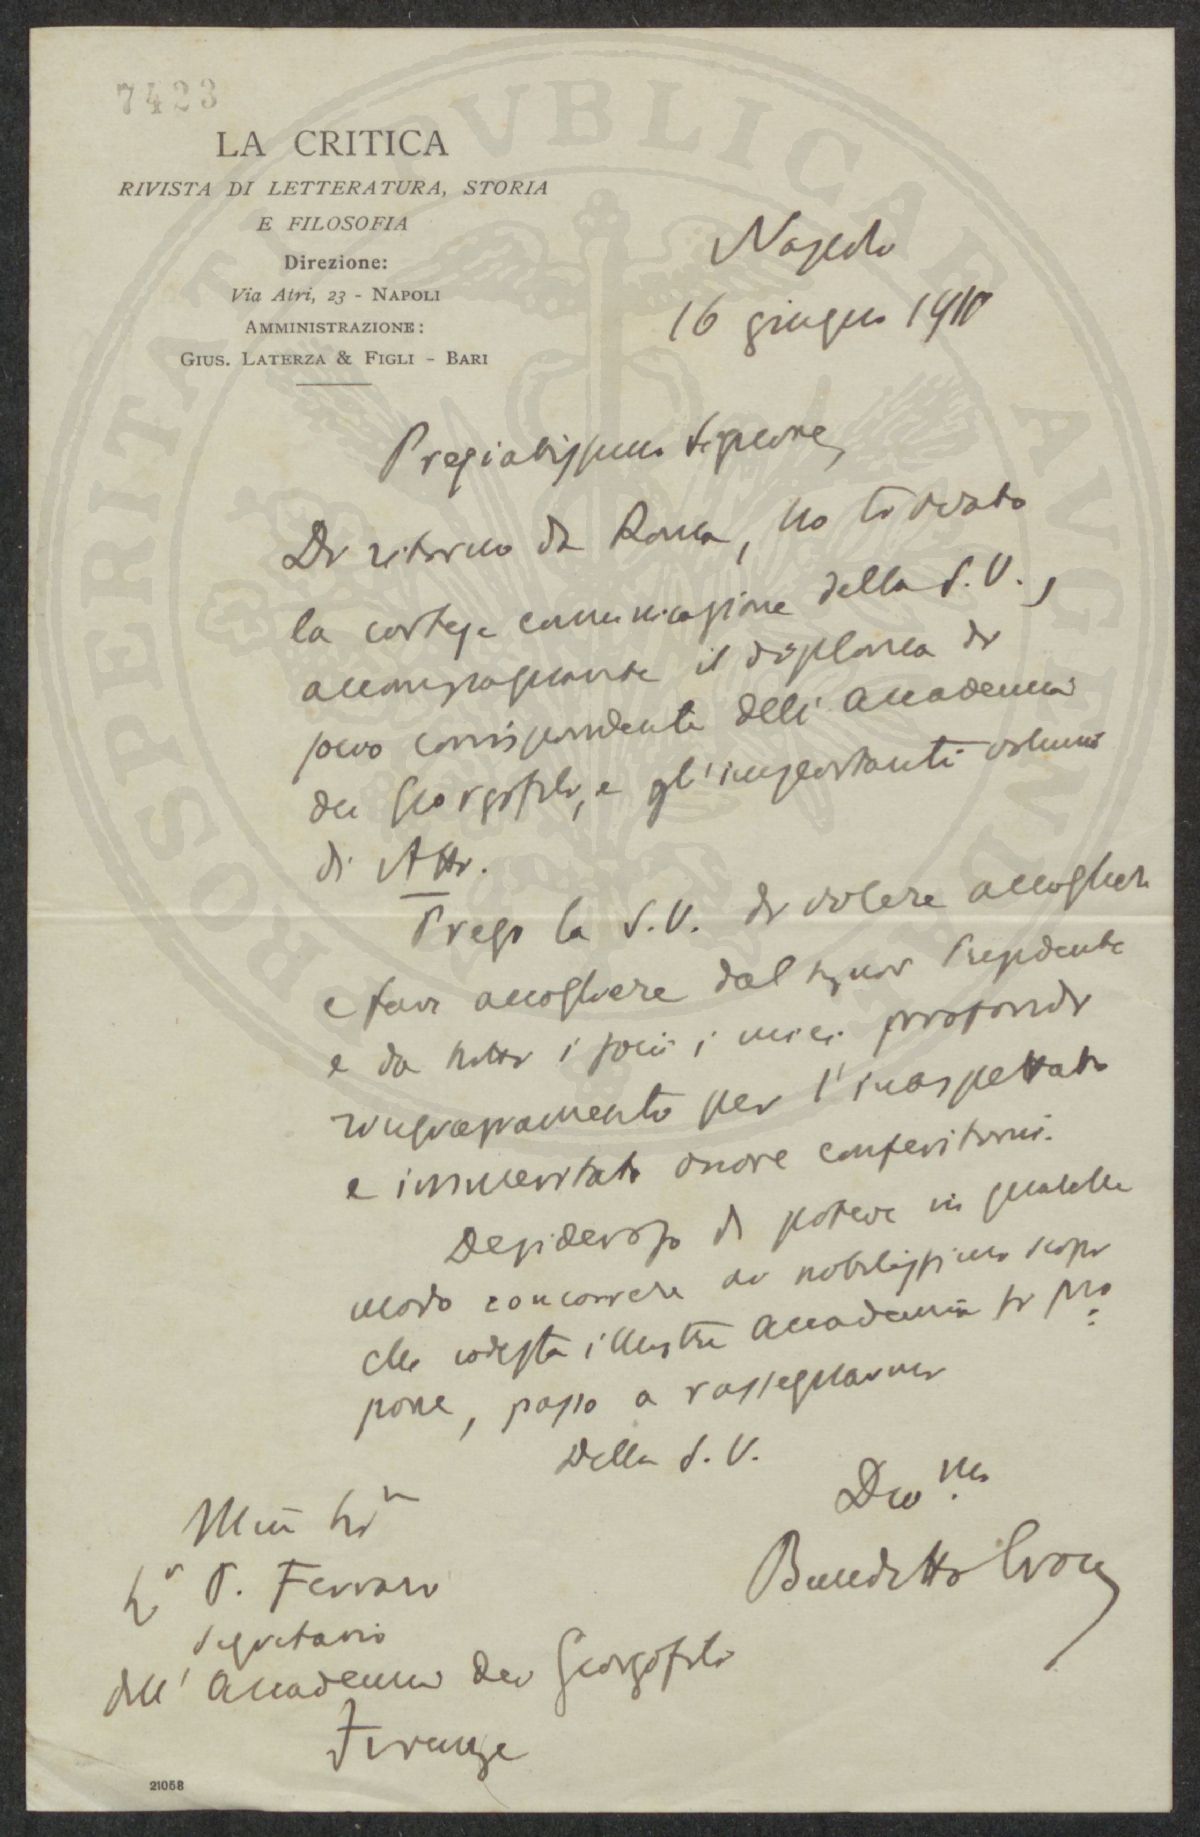 7423
LA CRITICA
RIVISTA DI LETTERATURA, STORIA
E FILOSOFIA
Direzione:
Via Atri, 23 - NAPOLI
AMMINISTRAZIONE:
GIUS. LATERZA & FIGLI - BARI
PROSPERITATI PVBLICAE AVGENDAE
Napoli
16 giugno 1910
Pregiatissimo Signore,
Di ritorno da Roma, ho trovato
la cortese comunicazione della S.V.,
accompagnante il diploma di
socio corrispondente dell'Accademia
dei Georgofili, e gl'importanti volumi
di Atti.
Prego la S.V. di volere accogliere
e fare accogliere dal signor Presidente
e da tutti i socii i miei profondi
ringraziamenti per l'inaspettato
e immeritato onore conferitomi.
Desideroso di potere in qualche
modo concorrere ai nobilissimi scopi
che codesta illustre Accademia si pro
pone, passo a rassegnarmi
Della S.V.
Dev.mo
Benedetto Croce
P. Ferrari
Segretario
dell'Accademia dei Georgofili
Firenze
21058